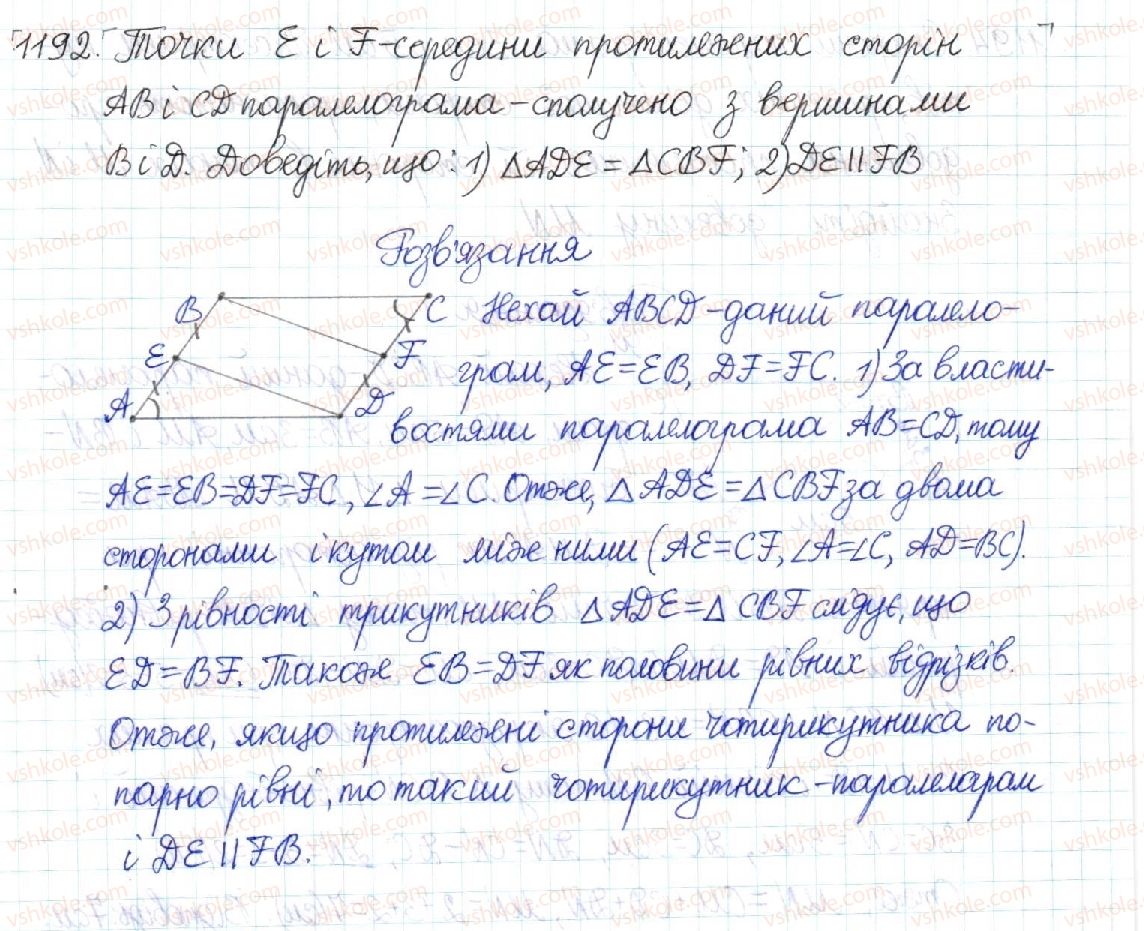 1192. Точки E і F-середини протилежних сторін
AB і CD паралелограма - сполучено з вершинами
B і D. Доведіть, що: 1) △ADE = △CBF; 2) DE || FB
Розв'язання
B
C
E
F
A
D
Нехай ABCD - даний парале­ло-
грам, AE=EB, DF=FC. 1) За власти-
востями паралелограма AB=CD, тому
AE=EB=DF=FC, ∠A=∠C. Отже, △ADE=△CBF за двома
сторонами і кутом між ними (AE=CF, ∠A=∠C, AD=BC).
2) З рівності трикутників △ADE=△CBF слідує, що
ED=BF. Також EB=DF як половини рівних відрізків.
Отже, якщо протилежні сторони чотирикутника по-
парно рівні, то такий чотирикутник - паралелограм
і DE || FB.